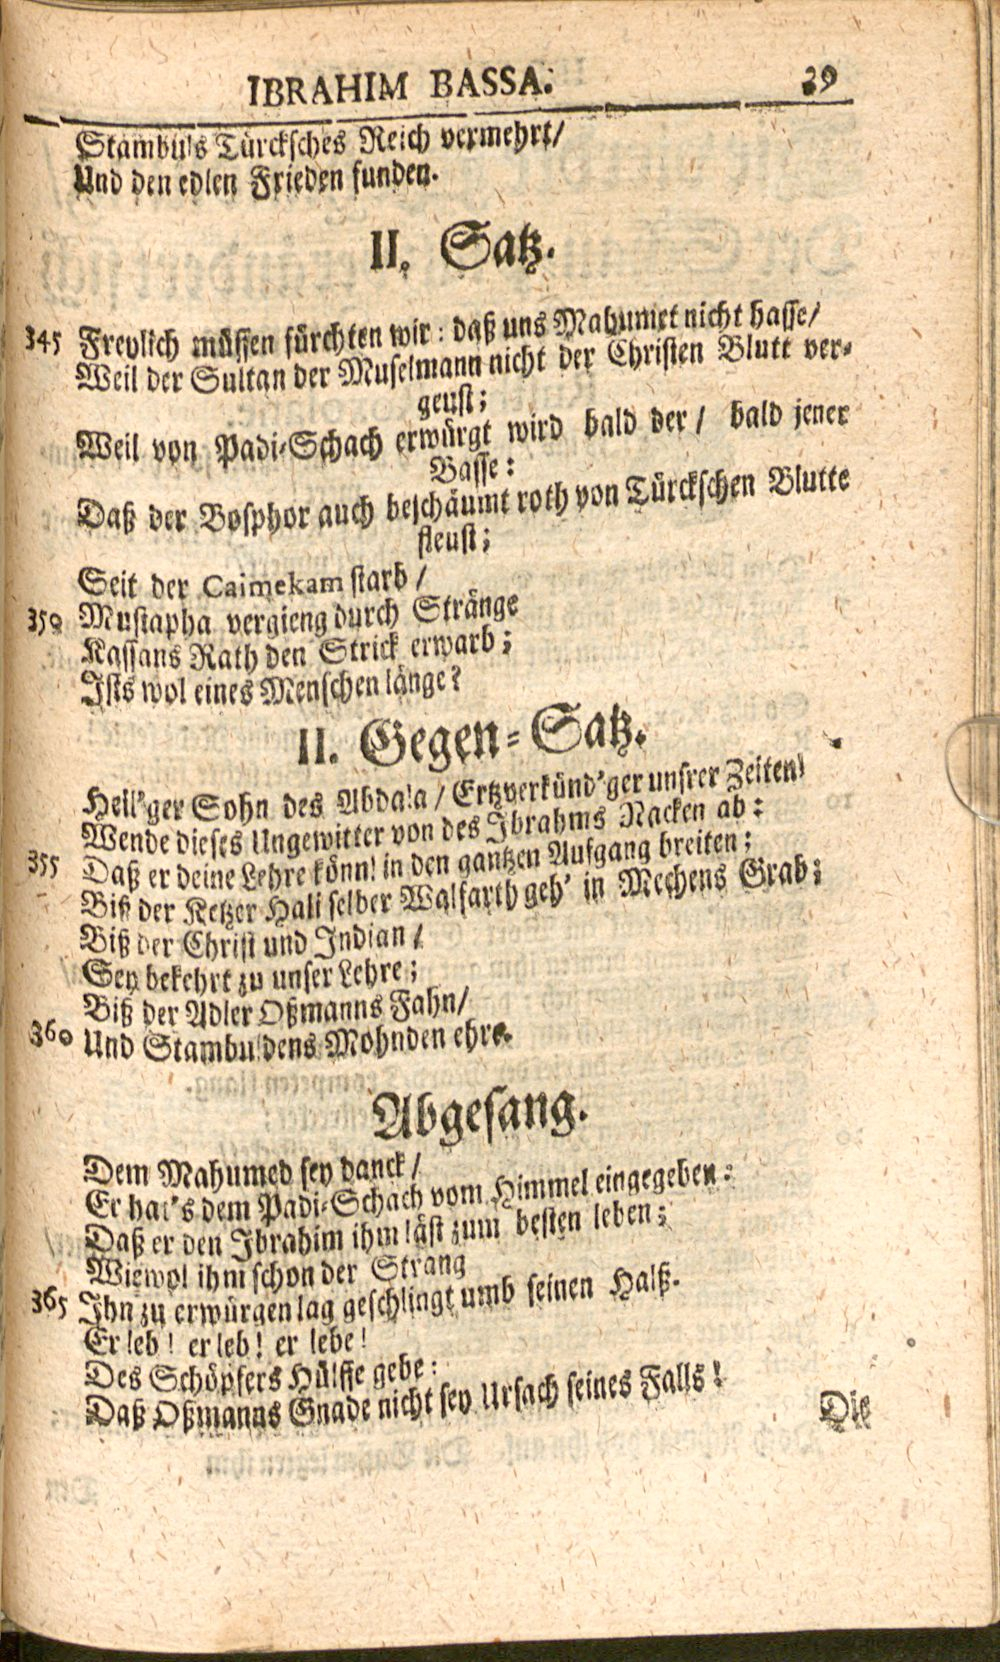 IBRAHIM BASSA. 39
Stambuls Türcksches Reich vermehrt/
Und den edlen Frieden funden.
II. Satz.
345 Freylich müssen fürchten wir: daß uns Mahumet nicht hasse/
Weil der Sultan der Muselmann nicht der Christen Blutt ver-
geust;
Weil von Padi-Schach erwürgt wird bald der/ bald jener
Basse:
Daß der Bosphor auch beschäumt roth von Türckschen Blutte
fleust;
Seit der Caimekam starb/
350 Mustapha vergieng durch Stränge
Kassans Rath den Strick erwarb;
Ists wol eines Menschen länge?
II. Gegen-Satz.
Heil'ger Sohn des Abdala/ Ertzverkünd'ger unsrer Zeiten!
Wende dieses Ungewitter von des Ibrahms Nacken ab:
355 Daß er deine Lehre könn! in den gantzen Aufgang breiten;
Biß der Ketzer Hali selber Walfarth geh' in Mechens Grab;
Biß der Christ und Indian/
Sey bekehrt zu unser Lehre;
Biß der Adler Oßmanns Fahn/
360 Und Stambuldens Mohnden ehre.
Abgesang.
Dem Mahumed sey danck/
Er hat's dem Padi-Schach vom Himmel eingegeben:
Daß er den Ibrahim ihm läst zum besten leben;
Wiewol ihm schon der Strang
365 Ihn zu erwürgen lag geschlingt umb seinen Halß.
Er leb! er leb! er lebe!
Des Schöpfers Hülffe gebe:
Daß Oßmanns Gnade nicht sey Ursach seines Falls!
Die